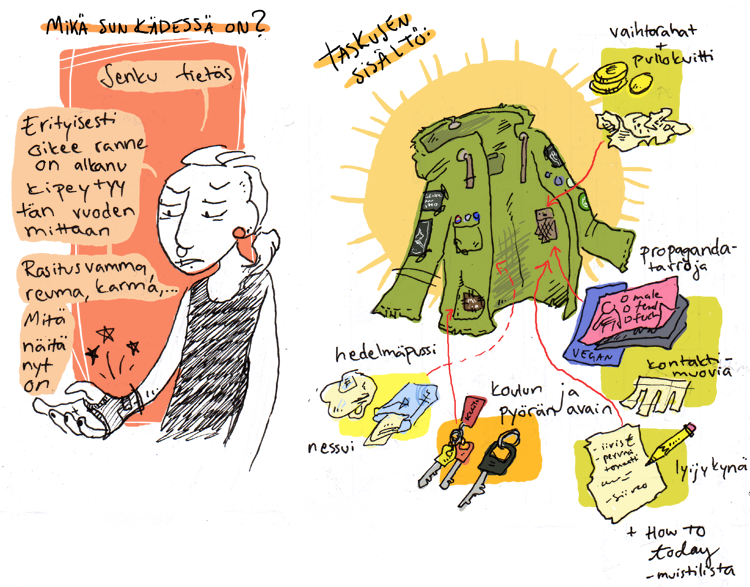 MIKÄ SUN KÄDESSÄ ON?
Senku tietäs
Erityisesti
oikee ranne
on alkanu
kipeytyy
tän vuoden
mittaan
Rasitusvamma,
reuma, karma,...
Mitä
näitä
nyt
on
TASKUJEN
SISÄLTÖ:
vaihtorahat
+
pullokuitti
propaganda-
tarroja
male
VEGAN
kontakti-
muovia
hedelmäpussi
nessui
koulun ja
pyörän avain
lyijykynä
+ HOW TO
today
-muistilista